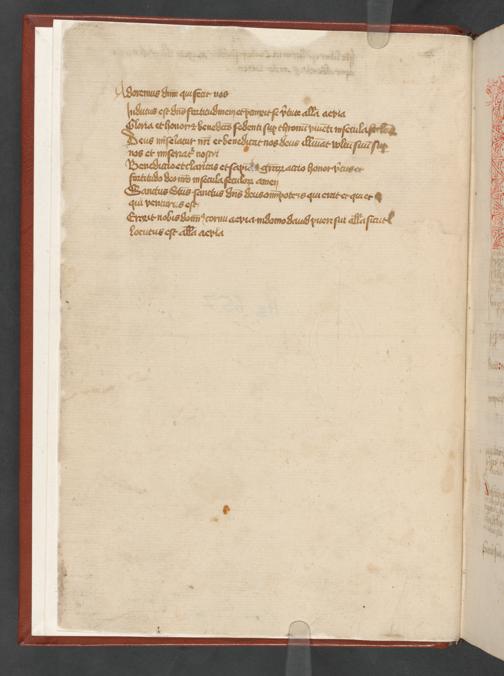 Adoremus dnm qui fecit nos
Indutus est dns fortitudinem et precinxit se v̄tute alla aevia
Gloria et honor et benedictio sedenti sup thronū viventi in secula seculoꝝ
Deus misereatur nr̄i et benedicat nos deus illuminet vultū suū sup
nos et misereatʳ nostri
Benedictio et claritas et sapiētia gr̄aꝝ actio honor v̄tus et
fortitudo deo nr̄o in secula seculoꝝ amen
Sanctus Sctus sanctus dns deus omnipotens qui erat et qui est
qui venturus est
Erexit nobis dominꝰ cornu aevia in domo david pueri sui alla sicut
locutus est alla aevia